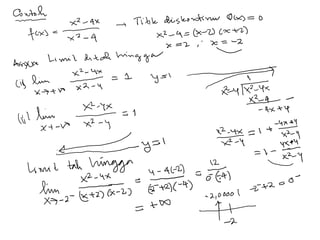 Contoh
f(x) = (x²-4x)/(x²-4) → Titik diskontinu Q(x)=0
x²-4 = (x-2)(x+2)
x=2, x=-2
Limit di tak hingga
(i) lim x→+∞ (x²-4x)/(x²-4) = 1 y=1
1
x²-4 √ x²-4x
x²-4
-4x+4
(ii) lim x→-∞ (x²-4x)/(x²-4) = 1
(x²-4x)/(x²-4) = 1 + (-4x+4)/(x²-4)
= 1 - (4x+4)/(x²-4)
y=1
Limit tak hingga
lim x→-2⁻ (x²-4x)/((x+2)(x-2)) = (4-4(-2))/((-2⁻+2)(-4)) = 12/(0⁻(-4))
= +∞
-2,0001 -2⁻+2 = 0⁻
-2